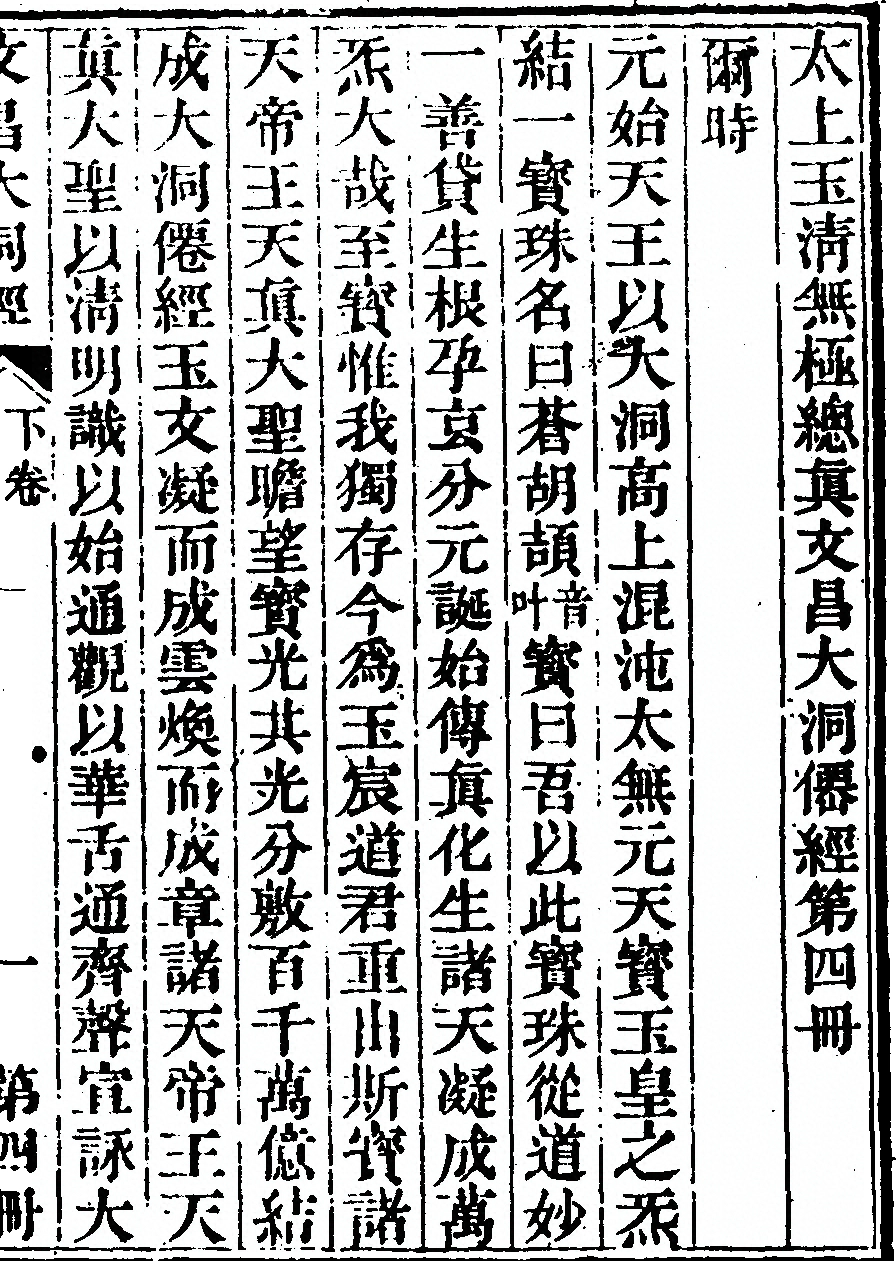 太上玉清無極總眞文昌大洞僊經第四冊
爾時
元始天王以大洞高上混沌太無元天寶玉皇之炁
結一寶珠名曰蒼胡頡音叶寶曰吾以此寶珠從道妙
一善貸生根孕㐮分元誕始傳眞化生諸天凝成萬
炁大哉至寶惟我獨存今爲玉宸道君重出斯寶諸
天帝王天眞大聖瞻望寶光其光分敷百千萬億結
成大洞僊經玉文凝而成雲煥而成章諸天帝王天
眞大聖以清明識以始通觀以華舌通齊聲宣詠大
文昌大洞經 下卷 一 第四冊